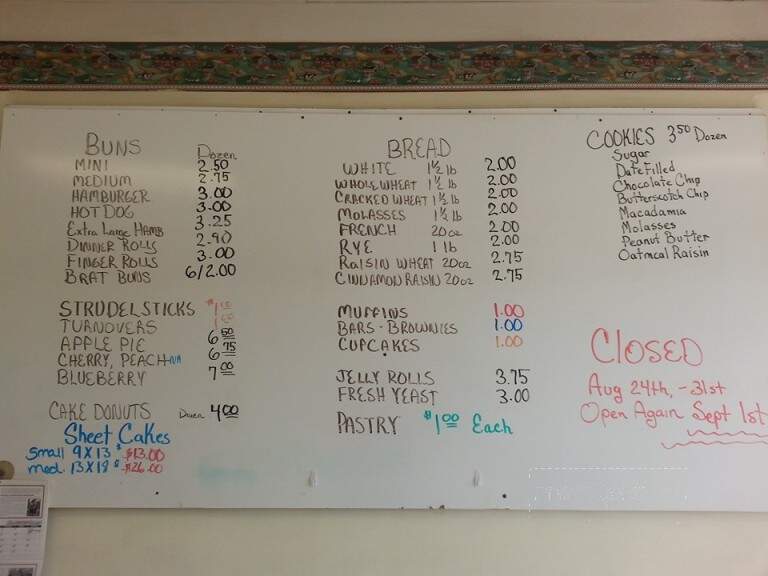 BUNS Dozen
MINI 2.50
MEDIUM 2.75
HAMBURGER 3.00
HOT DOG 3.00
Extra Large HAMB 3.25
DINNER ROLLS 2.90
FINGER ROLLS 3.00
BRAT BUNS 6/2.00
STRUDEL STICKS $1.00
TURNOVERS 1.00
APPLE PIE 6.50
CHERRY, PEACH-NA 6.75
BLUEBERRY 7.00
CAKE DONUTS Dozen 4.00
Sheet Cakes
Small 9X13 $13.00
med. 13X18 $26.00
BREAD
WHITE 1½ lb 2.00
WHOLE WHEAT 1½ lb 2.00
CRACKED WHEAT 1½ lb 2.00
MOLASSES 1½ lb 2.00
FRENCH 20oz 2.00
RYE 1 lb 2.00
RAISIN WHEAT 20oz 2.75
CINNAMON RAISIN 20oz 2.75
MUFFINS 1.00
BARS - BROWNIES 1.00
CUPCAKES 1.00
JELLY ROLLS 3.75
FRESH YEAST 3.00
PASTRY $1.00 Each
COOKIES 3.50 Dozen
Sugar
Date Filled
Chocolate Chip
Butterscotch Chip
Macadamia
Molasses
Peanut Butter
Oatmeal Raisin
CLOSED
Aug 24th, - 31st
Open Again Sept 1st